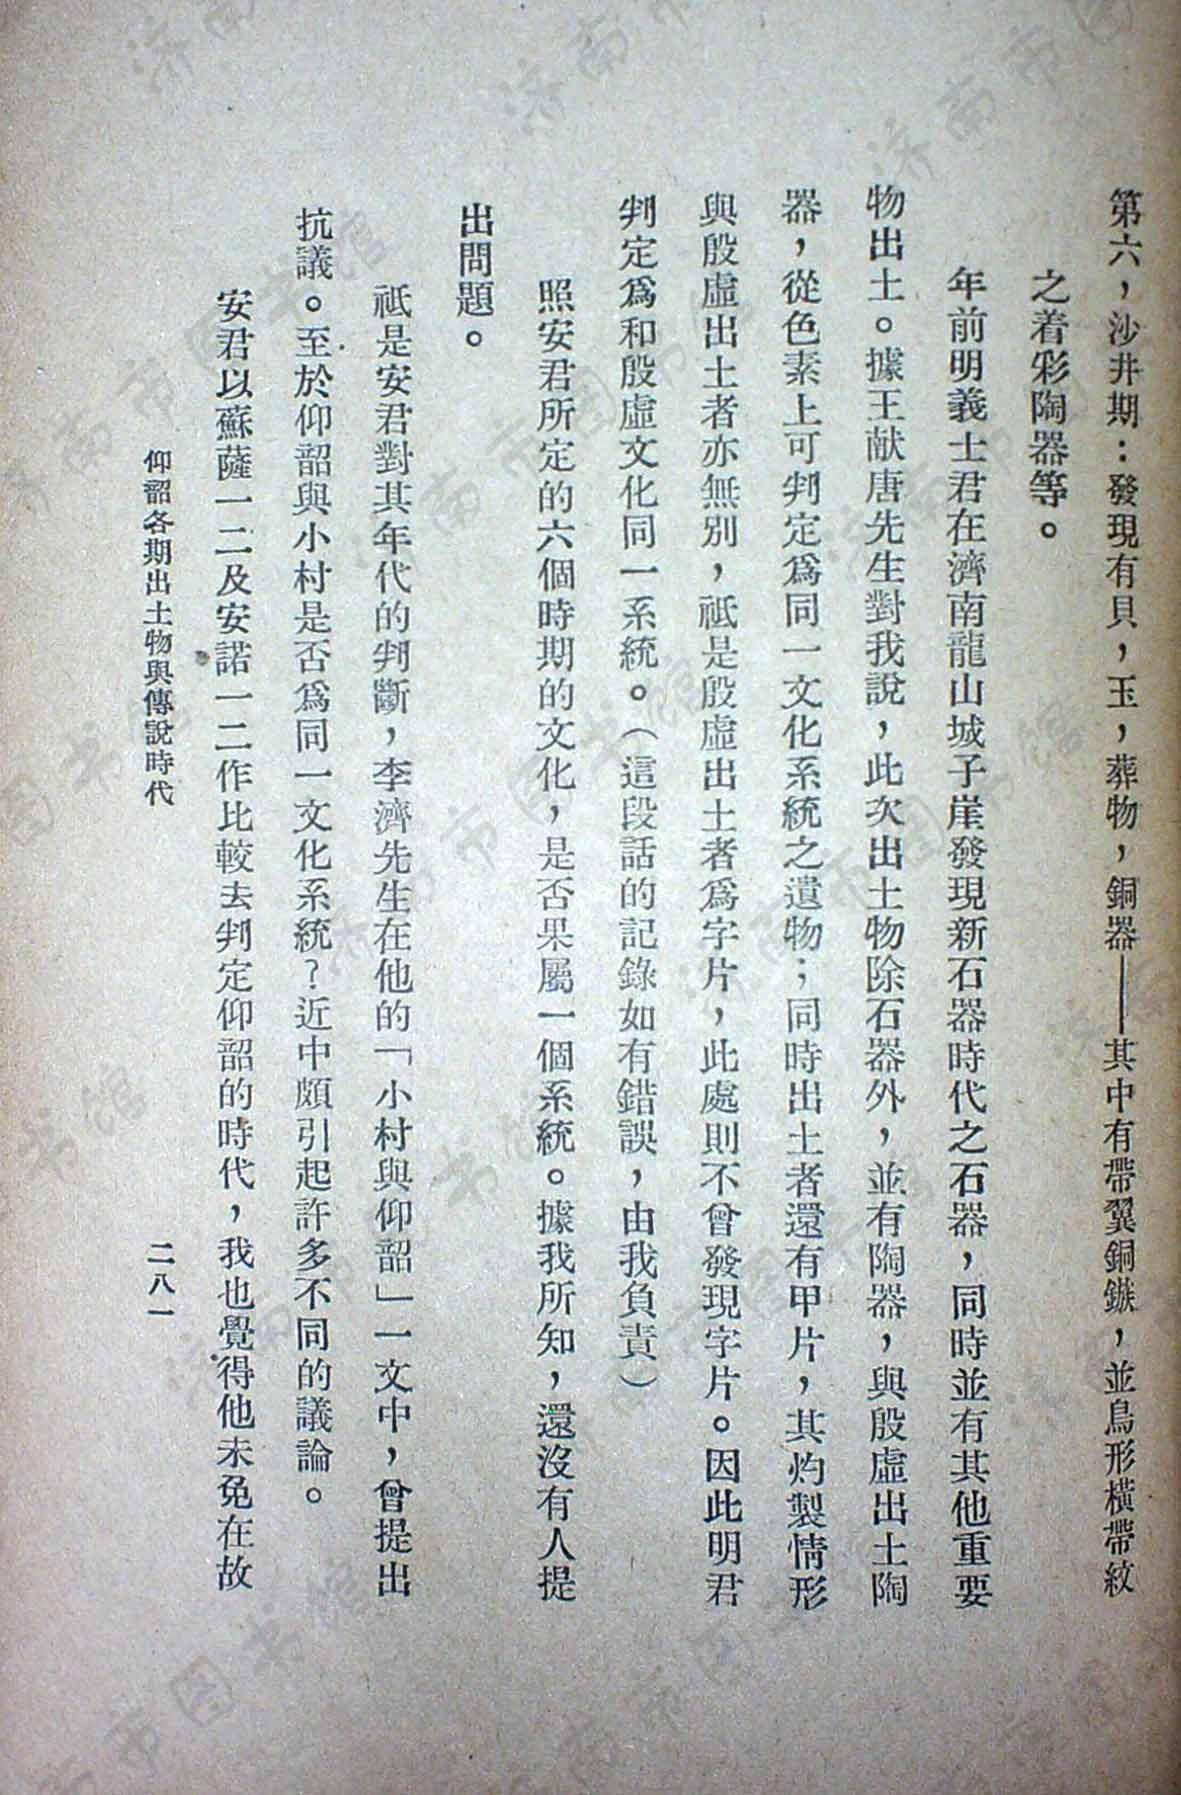 第六，沙井期：發現有貝，玉，葬物，銅器——其中有帶翼銅鏃，並鳥形橫帶紋
之着彩陶器等。
年前明義士君在濟南龍山城子崖發現新石器時代之石器，同時並有其他重要
物出土。據王献唐先生對我說，此次出土物除石器外，並有陶器，與殷虛出土陶
器，從色素上可判定爲同一文化系統之遺物；同時出土者還有甲片，其灼製情形
與殷虛出土者亦無別，祗是殷虛出土者爲字片，此處則不曾發現字片。因此明君
判定爲和殷虛文化同一系統。（這段話的記錄如有錯誤，由我負責）
照安君所定的六個時期的文化，是否果屬一個系統。據我所知，還沒有人提
出問題。
祗是安君對其年代的判斷，李濟先生在他的「小村與仰韶」一文中，曾提出
抗議。至於仰韶與小村是否爲同一文化系統？近中頗引起許多不同的議論。
安君以蘇薩一二及安諾一二作比較去判定仰韶的時代，我也覺得他未免在故
仰韶各期出土物與傳說時代
二八一
济南市图书馆